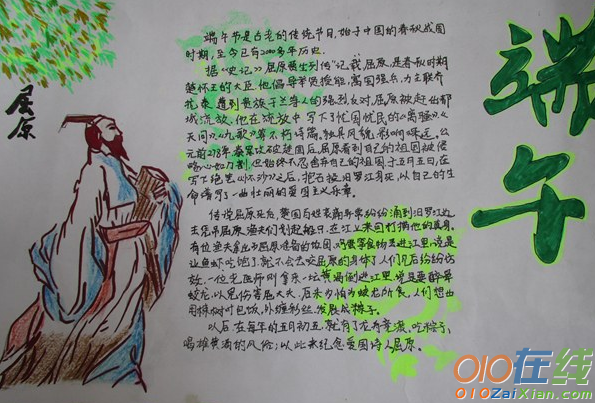 端午
屈原
端午节是古老的传统节日,始于中国的春秋战国
时期,至今已有2000多年历史.
据《史记》屈原贾生列传"记载,屈原,是春秋时期
楚怀王的大臣,他倡导举贤授能,富国强兵,力主联齐
抗秦,遭到贵族子兰等人的强烈反对,屈原被赶出都
城,流放,他在流放中,写下了忧国忧民的《离骚》《
天问》《九歌》等不朽诗篇,独具风貌,影响深远,公
元前278年,秦军攻破楚国后,屈原看到自己的祖国被侵
略心如刀割,但始终不忍舍弃自己的祖国,于五月五日,在
写下绝笔《怀沙》之后,抱石投汨罗江身死,以自己的生
命谱写了一曲壮丽的爱国主义乐章.
传说屈原死后,楚国百姓哀痛异常纷纷涌到汨罗江边
去凭吊屈原.渔夫们划起船只,在江上来回打捞他的真身.
有位渔夫拿出为屈原准备的饭团、鸡蛋等食物丢进江里,说是
让鱼虾吃饱了,就不会去咬屈原的身体了.人们见后纷纷仿
效.一位老医师则拿来一坛黄酒倒进江里,说是要醉晕
蛟龙,以免伤害屈大夫,后来为怕为蛟龙所食,人们想出
用楝树叶包饭,外缠彩丝,发展成粽子.
以后,在每年的五月初五,就有了龙舟竞渡、吃粽子、
喝雄黄酒的风俗;以此来纪念爱国诗人屈原.
010在线
010ZaiXian.com